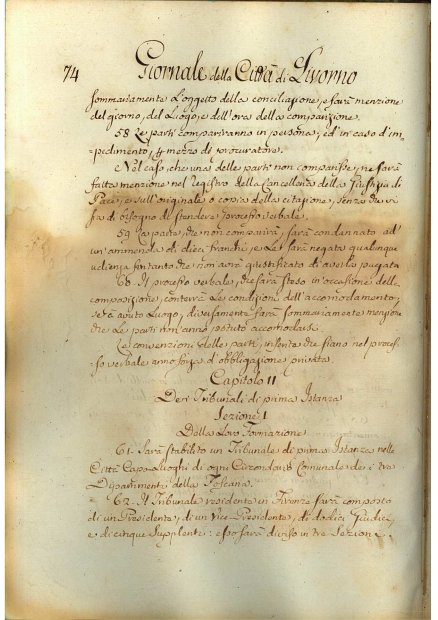 74 Giornale della Città di Livorno
sommariamente l'oggetto della conciliazione, e farà menzione
del giorno, del Luogo, e dell'ora della comparizione.
58. Le parti compariranno in persona; ed in caso d'im-
=pedimento, p mezzo di procuratore.
Nel caso, che una delle parti non comparisse, ne sarà
fatta menzione nel registro della Cancelleria della Giustizia di
Pace, e sull'originale o copia della citazione, senza che vi
sia di bisogno di stendere processo verbale.
59. La parte, che non comparirà, sarà condannata ad
un'ammenda di dieci franchi, e Le sarà negata qualunque
udienza fintanto che non avrà giustificato di averla pagata
60. Il processo verbale, che sarà steso in occasione della
composizione, conterrà Le condizioni dell'accomodamento,
se v'è avuto Luogo, diversamente farà sommariamente menzione
che Le parti non anno potuto accomodarsi.
Le convenzioni delle parti, inserite che siano nel proces-
so verbale anno forza d'obbligazione privata.
Capitolo II
Dei Tribunali di prima Istanza
Sezione I
Della Loro Formazione
61. Sarà stabilito un Tribunale di prima Istanza nelle
Città Capo-Luoghi di ogni Circondario Comunale dei tre
Dipartimenti della Toscana.
= 62. Il Tribunale residente in Firenze sarà composto
di un Presidente, di un Vice-Presidente, di dodici Giudici,
e di cinque Supplenti: esso sarà diviso in tre Sezioni.